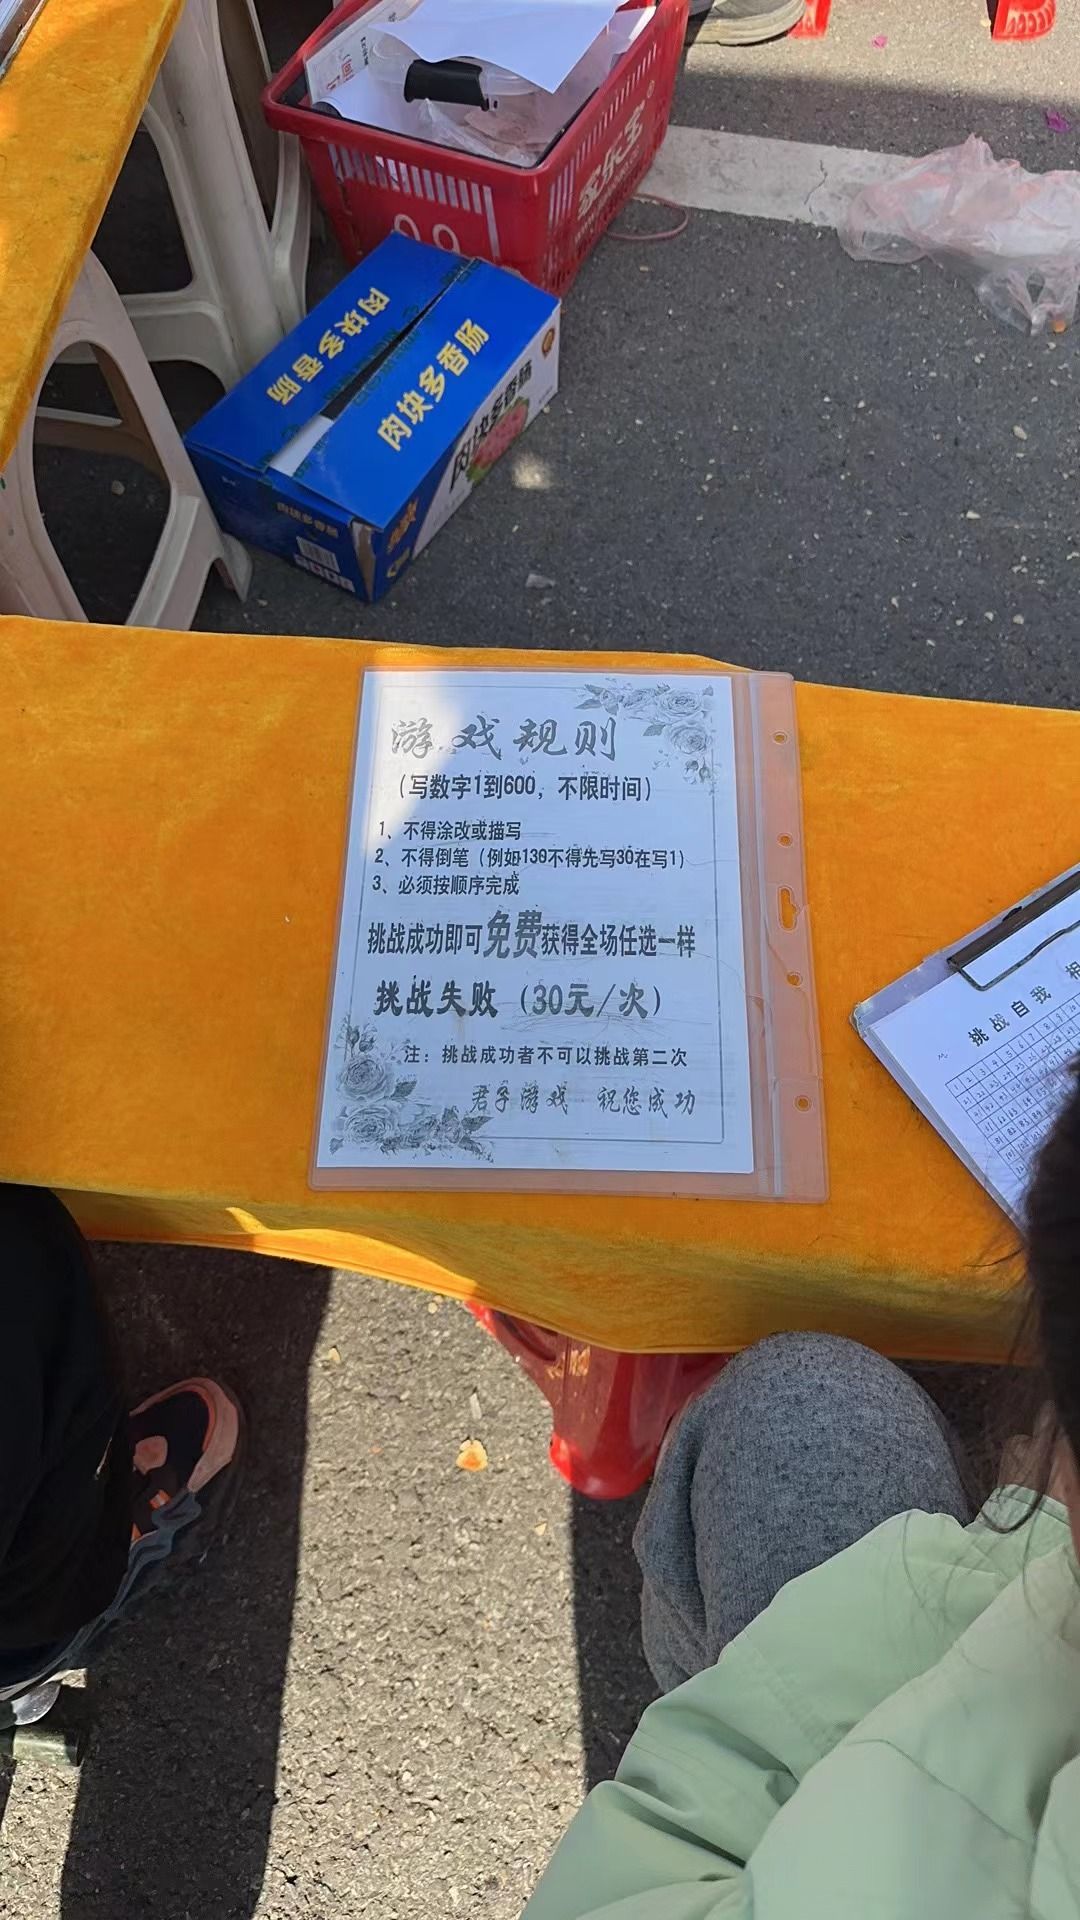 家乐宝
肉块多香肠
肉块多香肠
肉块多香肠
游戏规则
（写数字1到600，不限时间）
1、不得涂改或描写
2、不得倒笔（例如130不得先写30在写1）
3、必须按顺序完成
挑战成功即可免费获得全场任选一样
挑战失败（30元/次）
注：挑战成功者不可以挑战第二次
君子游戏 祝您成功
挑战自我
1 2 3 4 5 6 7 8 9 10